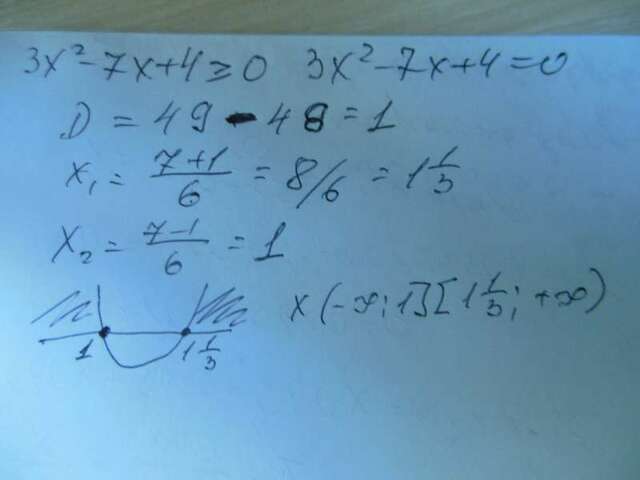 3x²-7x+4≥0 3x²-7x+4=0
D = 49 - 48 = 1
x₁ = (7+1)/6 = 8/6 = 1 1/3
x₂ = (7-1)/6 = 1
x(-∞;1][1 1/3; +∞)
1 1 1/3